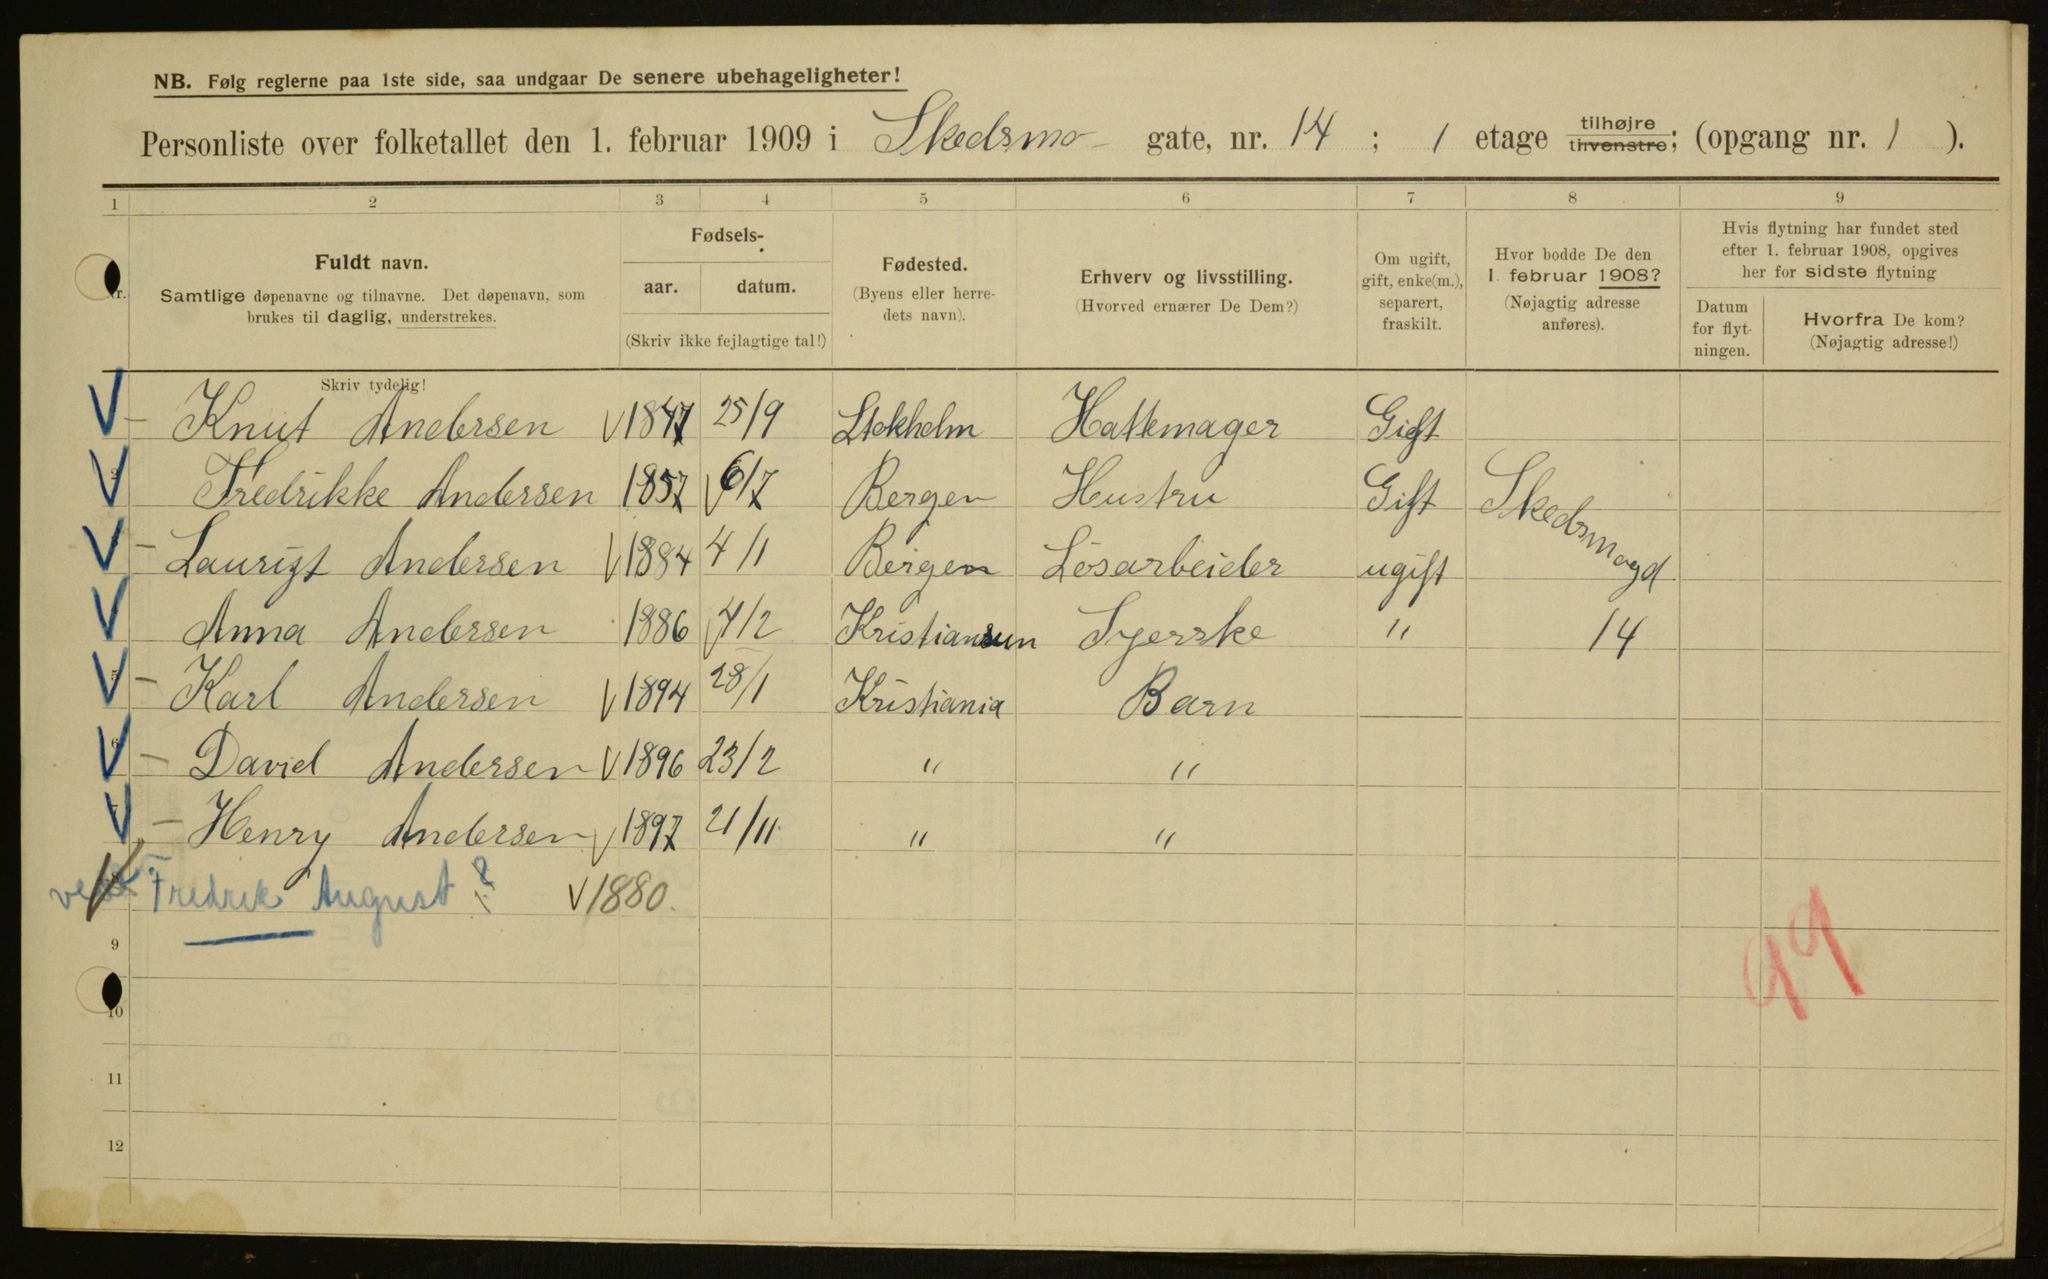 NB. Følg reglerne paa 1ste side, saa undgaar De senere ubehageligheter!
Personliste over folketallet den 1. februar 1909 i Skedsmo- gate, nr. 14 ; 1 etage tilhøjre tilvenstre; (opgang nr. 1 ).
1 2 3 4 5 6 7 8 9
Nr.
Fuldt navn.
Samtlige døpenavne og tilnavne. Det døpenavn, som
brukes til daglig, understrekes.
Skriv tydelig!
Fødsels-
aar. datum.
(Skriv ikke fejlagtige tal!)
Fødested.
(Byens eller herre-
dets navn).
Erhverv og livsstilling.
(Hvorved ernærer De Dem?)
Om ugift,
gift, enke(m.),
separert,
fraskilt.
Hvor bodde De den
1. februar 1908?
(Nøjagtig adresse
anføres).
Hvis flytning har fundet sted
efter 1. februar 1908, opgives
her for sidste flytning
Datum
for flyt-
ningen.
Hvorfra De kom?
(Nøjagtig adresse!)
V – Knut Andersen V 1847 25/9 Stokholm Hattemager Gift
V Fredrikke Andersen 1857 V 6/7 Bergen Hustru Gift Skedsmogd
V – Laurigt Andersen V 1884 4/1 Bergen Lösarbeider ugift
V Anna Andersen 1886 V 4/2 Kristiansun Syerske " 14
V 5 – Karl Andersen V 1894 28/1 Kristiania Barn
V 6 – David Andersen V 1896 23/2 " "
V 7 – Henry Andersen V 1897 21/11 " "
Fredrik August ? V 1880.
9
99
10
11
12